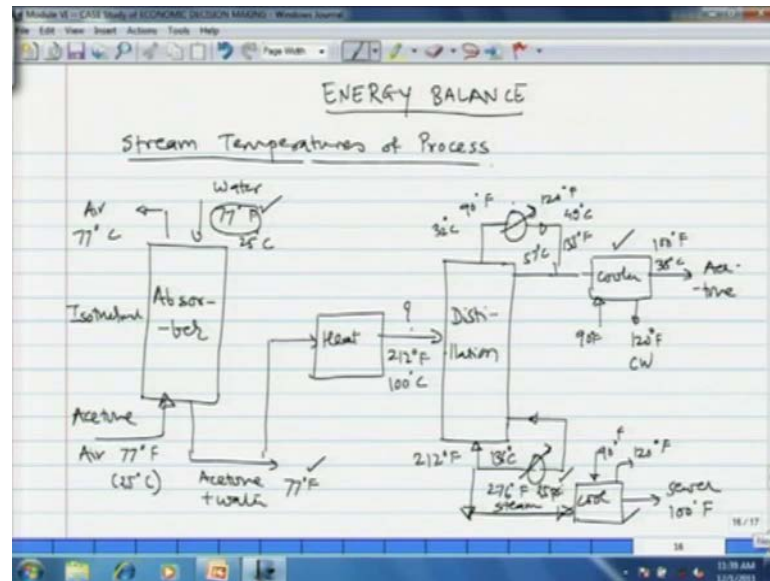 Module VI -- CASE Study of ECONOMIC DECISION MAKING - Windows Journal
File Edit View Insert Actions Tools Help
Page Width
ENERGY BALANCE
Stream Temperatures of Process
Air
77°C
Water
77°F
25°C
Isothermal
Absor-
-ber
Acetone
Air 77°F
(25°C)
Acetone
+ water
77°F
Heat
212°F
100°C
Disti-
-llation
90°F
30°C
120°F
49°C
57°C
135°F
Cooler
100°F
38°C
Ace-
-tone
90F
120°F
CW
212°F
136°C
276°F
steam
90°F
120°F
Cool
sewer
100°F
16 / 17
16
11:39 AM